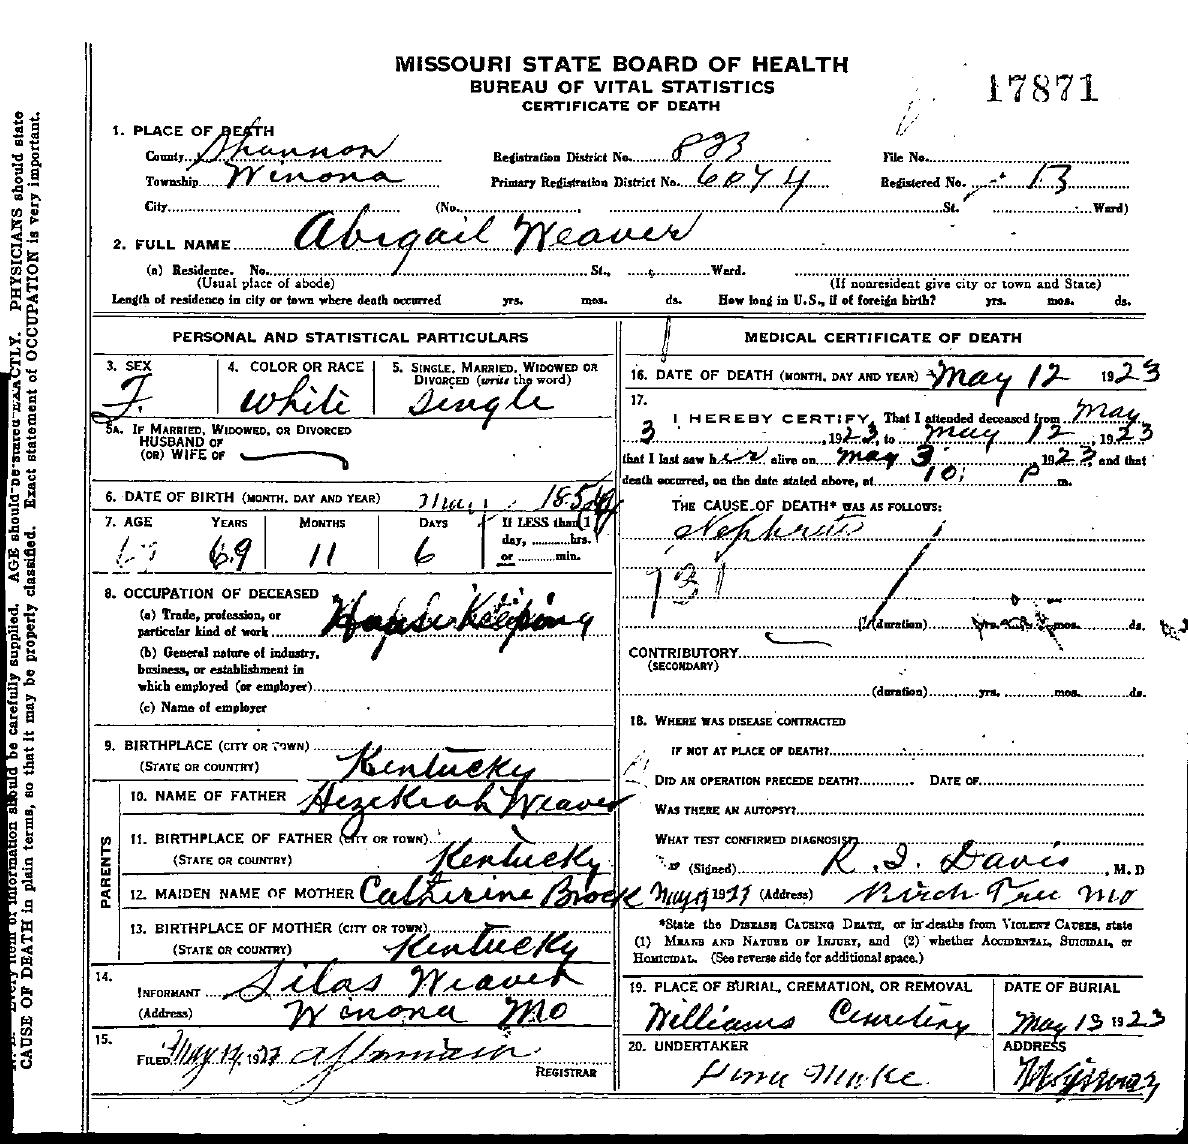 MISSOURI STATE BOARD OF HEALTH
BUREAU OF VITAL STATISTICS
CERTIFICATE OF DEATH
17871
1. PLACE OF DEATH
County Shannon Registration District No. 823 File No.
Township Winona Primary Registration District No. 6074 Registered No. 13
City (No. St. Ward)
2. FULL NAME Abigail Weaver
(a) Residence. No. St., Ward.
(Usual place of abode) (If nonresident give city or town and State)
Length of residence in city or town where death occurred yrs. mos. ds. How long in U.S., if of foreign birth? yrs. mos. ds.
PERSONAL AND STATISTICAL PARTICULARS
3. SEX 4. COLOR OR RACE 5. SINGLE, MARRIED, WIDOWED OR DIVORCED (write the word)
F. White Single
5A. IF MARRIED, WIDOWED, OR DIVORCED
HUSBAND OF
(OR) WIFE OF
6. DATE OF BIRTH (MONTH, DAY AND YEAR)
7. AGE YEARS MONTHS DAYS If LESS than 1
day, hrs.
or min.
69 11 6
8. OCCUPATION OF DECEASED
(a) Trade, profession, or
particular kind of work House Keeping
(b) General nature of industry,
business, or establishment in
which employed (or employer)
(c) Name of employer
9. BIRTHPLACE (CITY OR TOWN)
(STATE OR COUNTRY) Kentucky
PARENTS
10. NAME OF FATHER Hezekiah Weaver
11. BIRTHPLACE OF FATHER (CITY OR TOWN)
(STATE OR COUNTRY) Kentucky
12. MAIDEN NAME OF MOTHER Catherine Brock
13. BIRTHPLACE OF MOTHER (CITY OR TOWN)
(STATE OR COUNTRY) Kentucky
14.
INFORMANT Silas Weaver
(Address) Winona Mo
15.
FILED May 1923
REGISTRAR
MEDICAL CERTIFICATE OF DEATH
16. DATE OF DEATH (MONTH, DAY AND YEAR) May 12 1923
17.
I HEREBY CERTIFY, That I attended deceased from May
3, 1923, to May 12, 1923
that I last saw her alive on May 3, 1923, and that
death occurred, on the date stated above, at 10 P m.
THE CAUSE OF DEATH* WAS AS FOLLOWS:
Nephritis
131
(duration) yrs. mos. ds.
CONTRIBUTORY
(SECONDARY)
(duration) yrs. mos. ds.
18. WHERE WAS DISEASE CONTRACTED
IF NOT AT PLACE OF DEATH?
DID AN OPERATION PRECEDE DEATH? DATE OF
WAS THERE AN AUTOPSY?
WHAT TEST CONFIRMED DIAGNOSIS?
(Signed) R. I. Davis, M. D
May 1923 (Address) Birch Tree Mo
*State the DISEASE CAUSING DEATH, or in deaths from VIOLENT CAUSES, state
(1) MEANS AND NATURE OF INJURY, and (2) whether ACCIDENTAL, SUICIDAL, or
HOMICIDAL. (See reverse side for additional space.)
19. PLACE OF BURIAL, CREMATION, OR REMOVAL DATE OF BURIAL
Williams Cemetery May 13 1923
20. UNDERTAKER ADDRESS
information should be carefully supplied. AGE should be stated EXACTLY. PHYSICIANS should state
CAUSE OF DEATH in plain terms, so that it may be properly classified. Exact statement of OCCUPATION is very important.